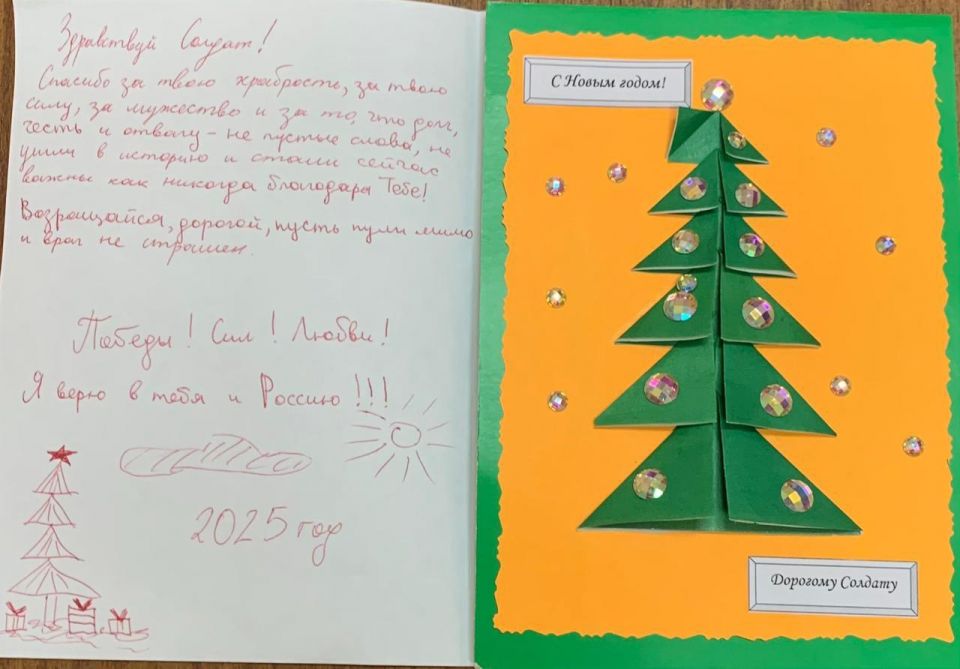 Здравствуй Солдат!
Спасибо за твою храбрость, за твою
силу, за мужество и за то, что долг,
честь и отвагу – не пустые слова, не
ушли в историю и стали сейчас
важны как никогда благодаря Тебе!
Возращайся, дорогой, пусть пули мимо
и враг не страшен.
Победы! Сил! Любви!
Я верю в тебя и Россию!!!
2025 год
С Новым годом!
Дорогому Солдату